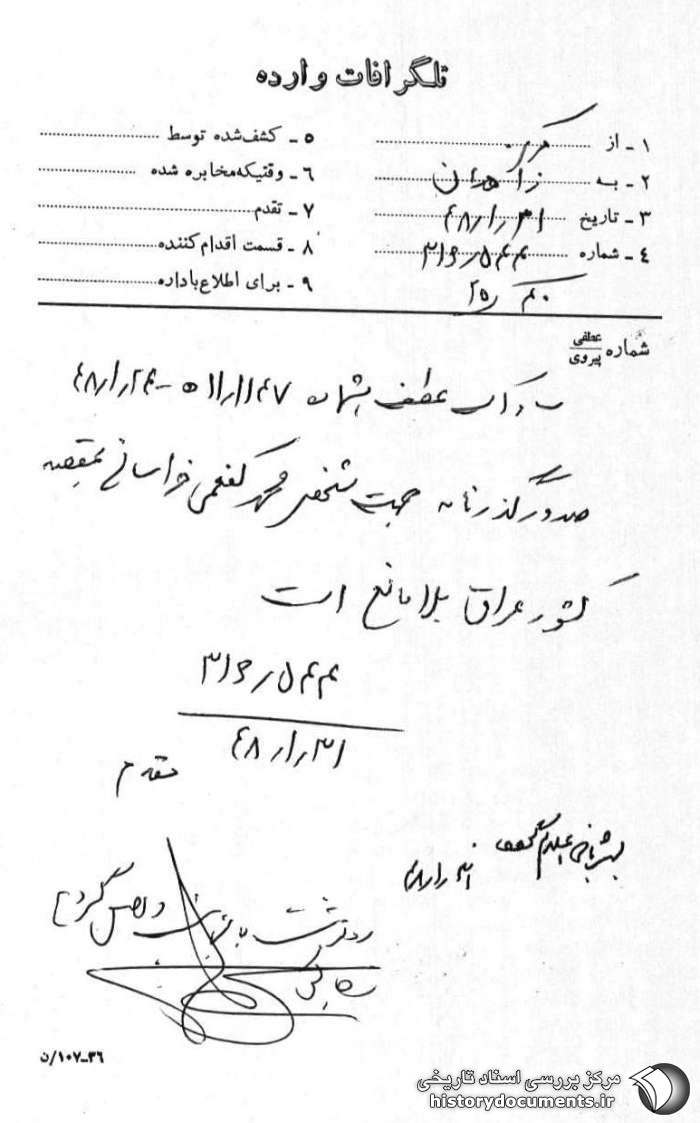 تلگرافات وارده
۱ - از مرکز
۲ - به زاهدان
۳ - تاریخ ۴۸٫۱٫۳۱
۴ - شماره ۳۱۶٫۵۴۴
۵ - کشف‌شده توسط
۶ - وقتیکه مخابره شده
۷ - تقدم
۸ - قسمت اقدام‌کننده
۹ - برای اطلاع‌باداره
شماره عطفی
پیروی
ساواک عطف بشماره
صدور گذرنامه جهت شخص محمد کفعمی خراسانی بمقصد
کشور عراق بلامانع است
۳۱۶٫۵۴۴
۴۸٫۱٫۳۱
مقدم
بشهربانی اعلام گردید
رونوشت
بایگانی
۳۶-۱۰۷/ن
مرکز بررسی اسناد تاریخی
historydocuments.ir